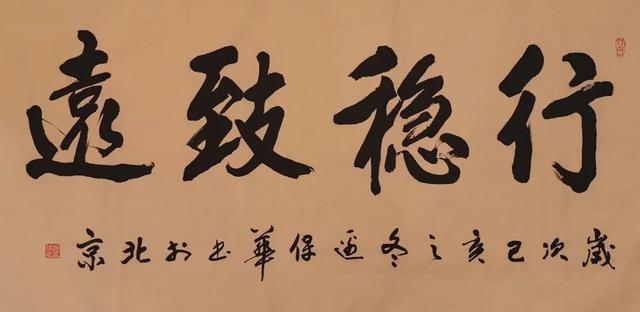 行稳致遠
歲次己亥之冬保華书於北京